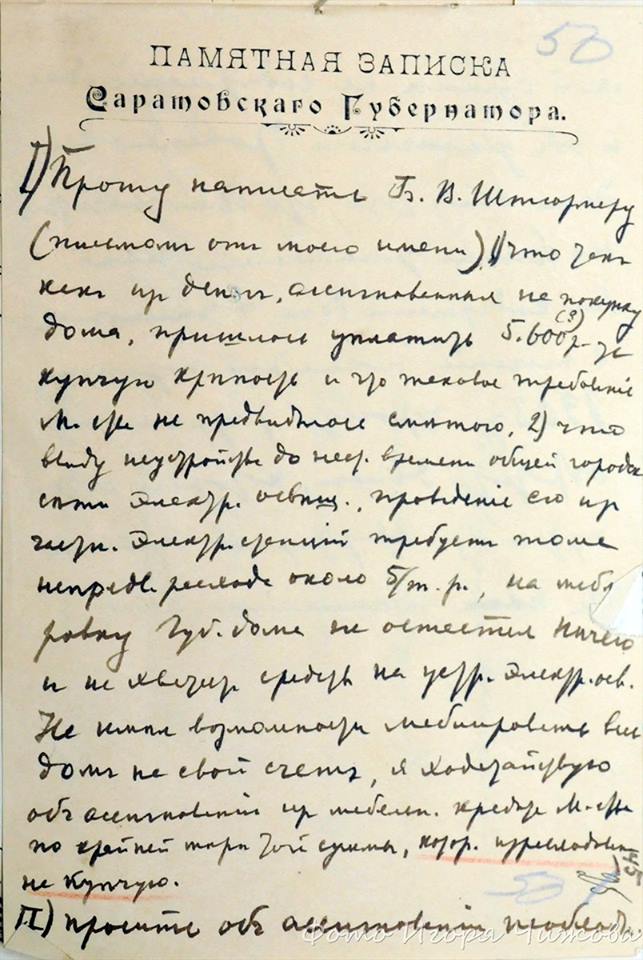 50
ПАМЯТНАЯ ЗАПИСКА
Саратовскаго Губернатора.
I) Прошу написать Б. В. Штюрмеру
(письмомъ отъ моего имени) 1) что такъ
какъ из денегъ, ассигнованныхъ на покупку
дома, пришлось уплатить 5.600 (?) р. за
купчую крѣпость и что таковое требованіе
М-ства не предвидѣлось смѣтою, 2) что
ввиду неустройства до наст. времени общей городск.
сѣти электр. освѣщ., проведеніе его из
частн. электр. станцій требуетъ тоже
непредв. расхода около 5/т. р., на мебли
ровку Губ. дома не остается ничего
и не хватаетъ средствъ на устр. электр. осв.
Не имѣя возможности меблировать весь
домъ на свой счетъ, я ходатайствую
объ ассигнованіи из мебельн. кредита М-ства
по крайней мѣрѣ той суммы, котор. израсходована
на купчую.
II) просить объ ассигнованіи необход.
Фото Игоря Чижова